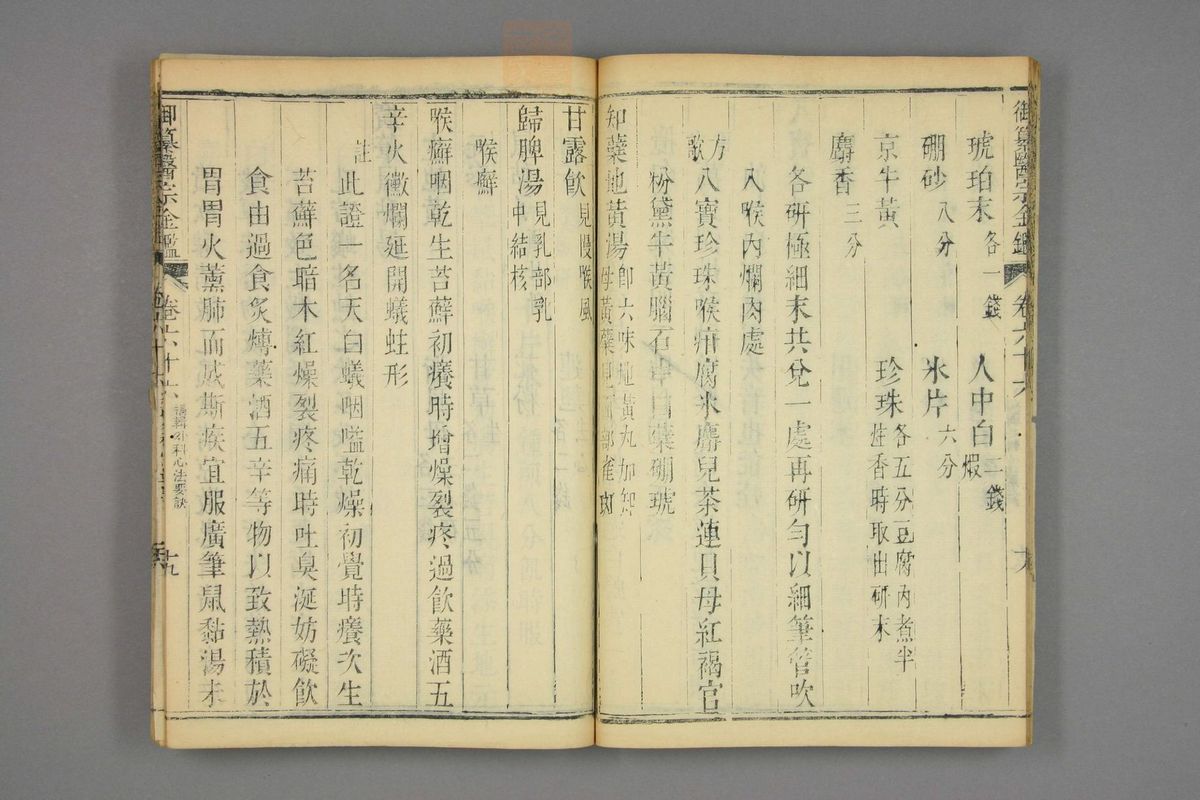 御纂醫宗金鑑 卷六十六
琥珀末各一錢 人中白煆二錢
硼砂八分 氷片六分
京牛黃 珍珠各五分豆腐內煮半炷香時取出研末
麝香三分
各研極細末共兌一處再研勻以細筆管吹
入喉內爛肉處
方歌 八寶珍珠喉疳腐氷麝兒茶連貝母紅褐官
粉黛牛黃腦石中白藥硼琥
知蘗地黃湯卽六味地黃丸加知母黃蘗見面部雀斑
甘露飮見慢喉風
歸脾湯見乳部乳中結核
喉癬
喉癬咽乾生苔蘚初癢時增燥裂疼過飮藥酒五
辛火黴爛延開蟻蛀形
註 此證一名天白蟻咽嗌乾燥初覺時癢次生
苔蘚色暗木紅燥裂疼痛時吐臭涎妨礙飮
食由過食炙煿藥酒五辛等物以致熱積於
胃胃火薰肺而成斯疾宜服廣筆鼠黏湯未
御纂醫宗金鑑 卷六十六 編輯外科心法要訣 十九